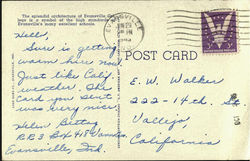 The splendid architecture of Evansville Col-
lege is a symbol of the high standards of
Evansville's many excellent schools.
EVANSVILLE
POST CARD
Hello,
Sure is getting
warm here now.
Just like Calif.
weather. The
Card you sent
was very nice.
Helen
R R 3 Box 418
Evansville, Ind.
E. W. Walker
222-14th. St
Vallejo,
California